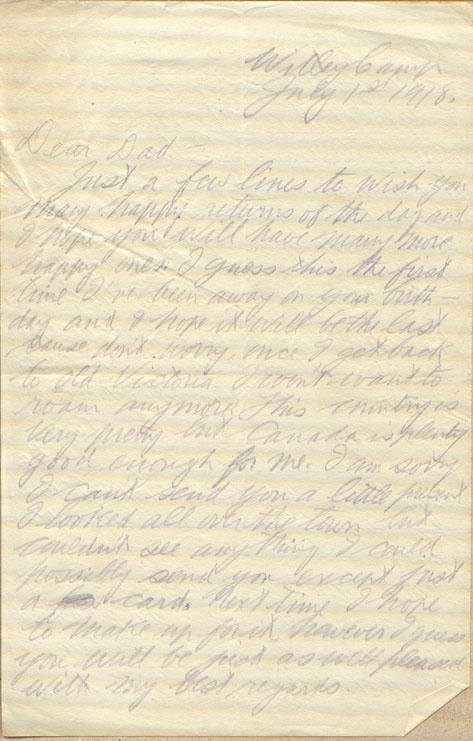 Witley Camp
July 1st 1918.
Dear Dad –
Just a few lines to wish you
many happy returns of the day and
I hope you will have many more
happy ones. I guess this the first
time I've been away on your birth –
day and I hope it will be the last
cause don't worry, once I get back
to old Victoria I won't want to
roam anymore. This country is
very pretty but Canada is plenty
good enough for me. I am sorry
I can't send you a little present
I looked all over the town but
couldn't see anything I could
possibly send you except just
a card. Next time I hope
to make up for it, however I guess
you will be just as well pleased
with my best regards.